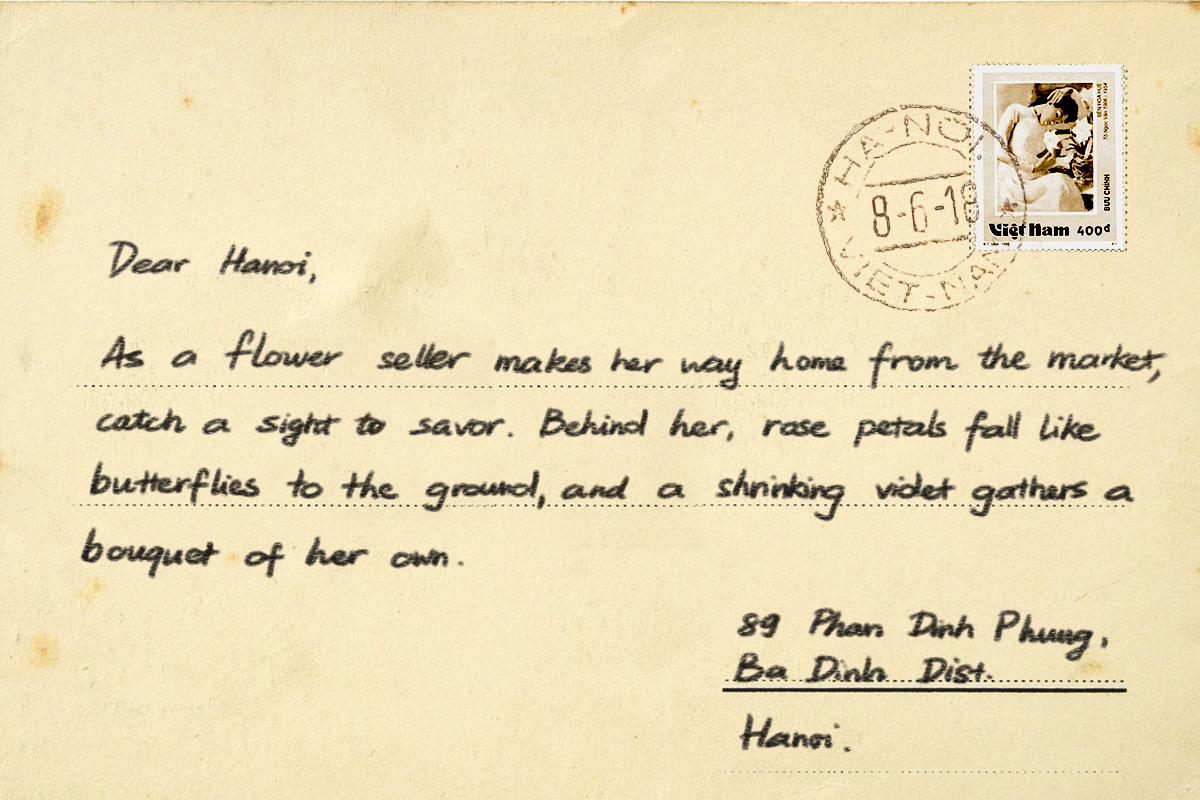 HA-NỘI
8-6-18
VIET-NAM
BƯU CHÍNH
Việt Nam 400đ
Dear Hanoi,
As a flower seller makes her way home from the market,
catch a sight to savor. Behind her, rose petals fall like
butterflies to the ground, and a shrinking violet gathers a
bouquet of her own.
89 Phan Dinh Phung,
Ba Dinh Dist.
Hanoi.